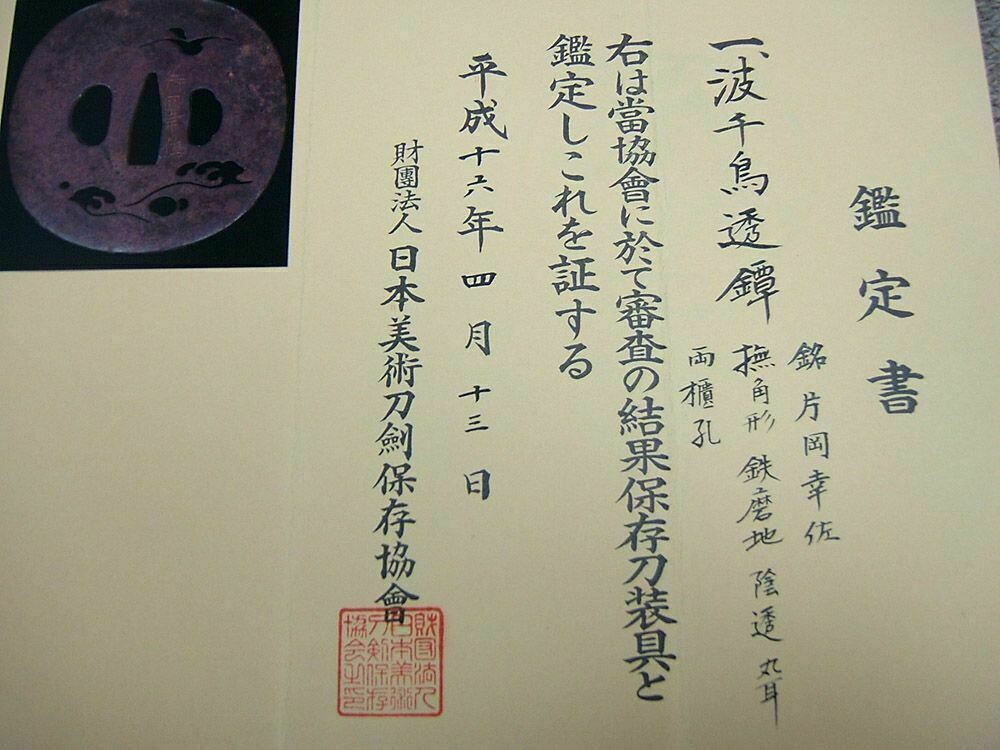 鑑定書
一、波千鳥透鐔
銘 片岡幸佐
撫角形 鉄磨地 陰透 丸耳
両櫃孔
右は當協會に於て審査の結果保存刀装具と
鑑定しこれを証する
平成十六年四月十三日
財團法人 日本美術刀劍保存協會
財団法人
日本美術
刀剣保存
協会之印